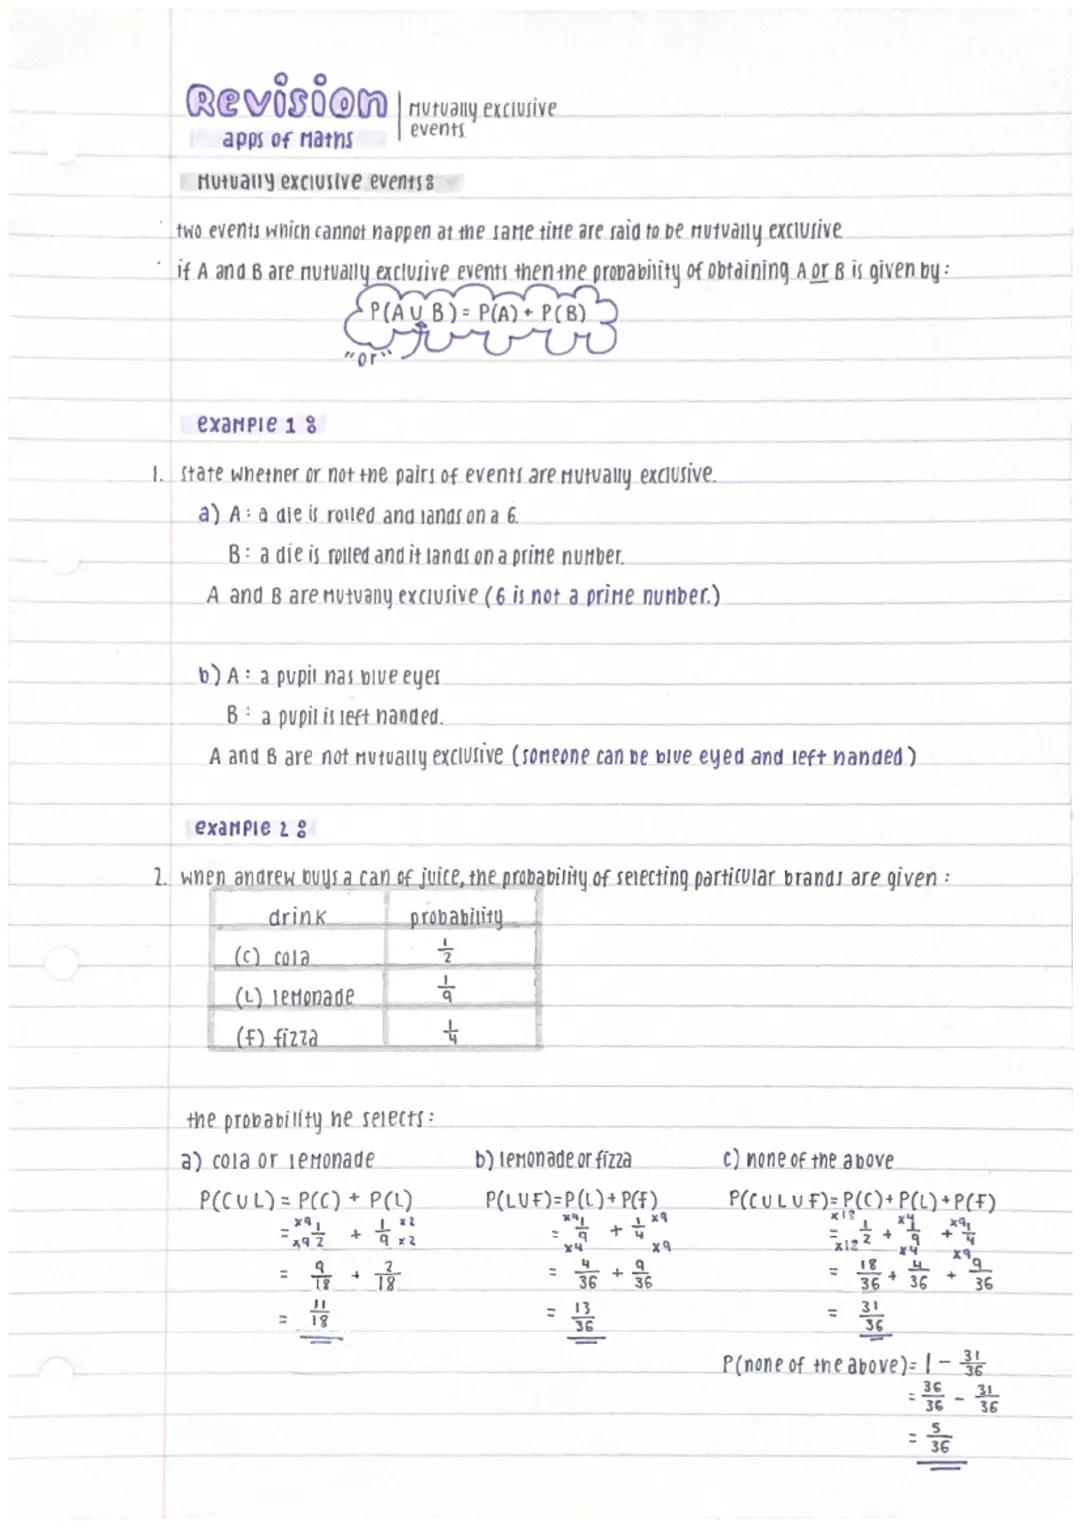 Revision
apps of Maths
Mutually exclusive
events
Mutually exclusive events:
two events which cannot happen at the same time are said to be mutually exclusive
if A and B are mutually exclusive events then the probability of obtaining A or B is given by:
P(A ∪ B) = P(A) + P(B)
"or"
example 1:
1. State whether or not the pairs of events are mutually exclusive.
a) A: a die is rolled and lands on a 6.
B: a die is rolled and it lands on a prime number.
A and B are mutually exclusive (6 is not a prime number.)
b) A: a pupil has blue eyes
B: a pupil is left handed.
A and B are not mutually exclusive (someone can be blue eyed and left handed)
example 2:
2. when andrew buys a can of juice, the probability of selecting particular brands are given:
drink probability
(C) cola 1/2
(L) lemonade 1/9
(F) fizza 1/4
the probability he selects:
a) cola or lemonade
P(C∪L) = P(C) + P(L)
= ×9 1/2 ×9 + 1/9 ×2 ×2
= 9/18 + 2/18
= 11/18
b) lemonade or fizza
P(L∪F)=P(L)+P(F)
= ×4 1/9 ×4 + 1/4 ×9 ×9
= 4/36 + 9/36
= 13/36
c) none of the above
P(C∪L∪F)=P(C)+P(L)+P(F)
= ×18 1/2 ×18 + ×4 1/9 ×4 + ×9 1/4 ×9
= 18/36 + 4/36 + 9/36
= 31/36
P(none of the above)= 1 - 31/36
= 36/36 - 31/36
= 5/36